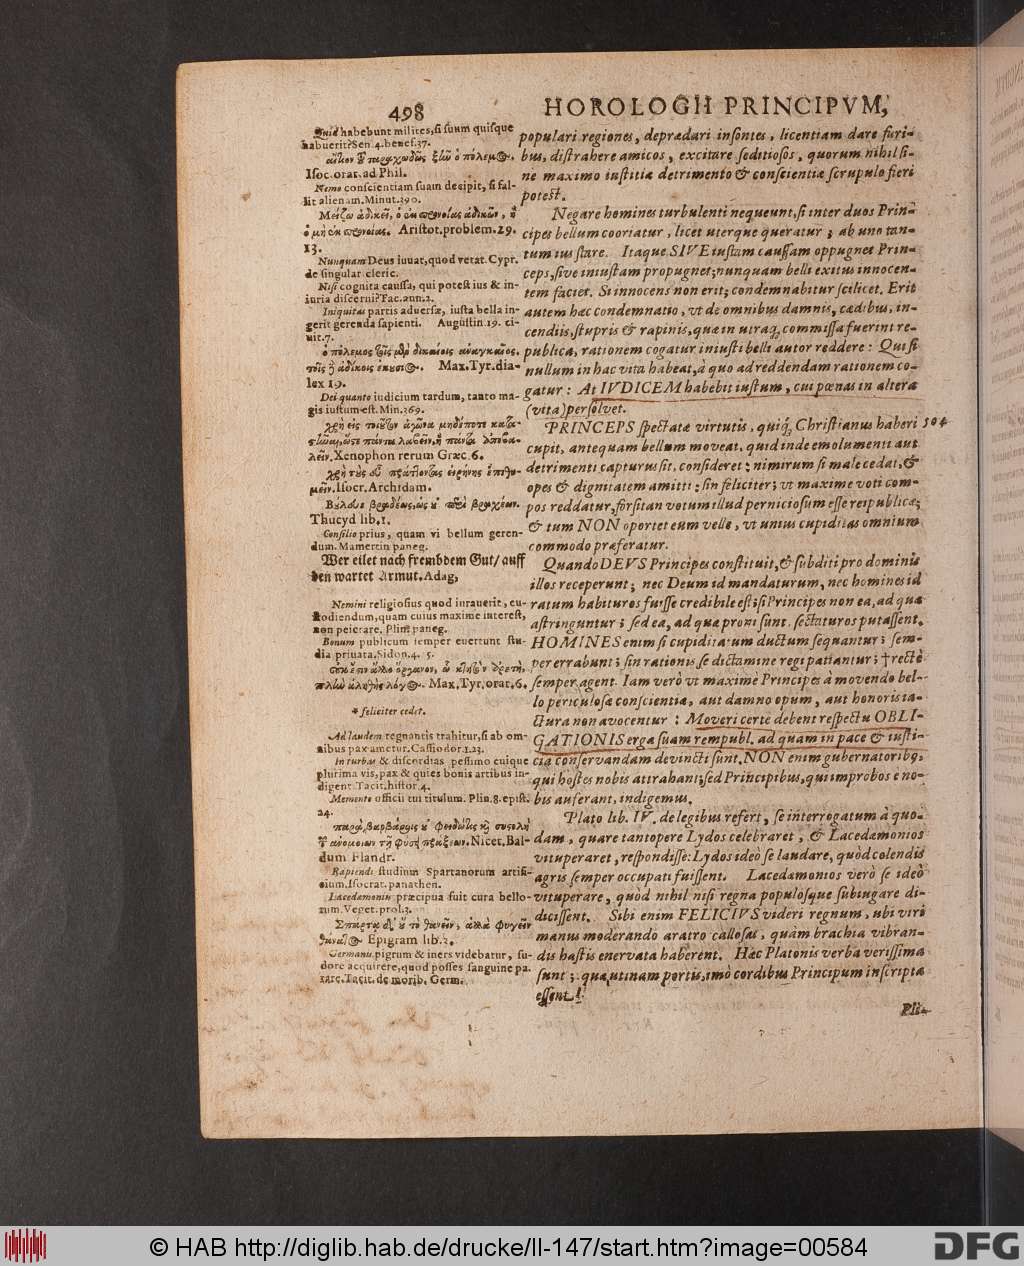 498
HOROLOGII PRINCIPVM,
Quid habebunt milites, si suum quisque
habuerit? Sen. 4. benef. 37.
Isoc. orat. ad Phil.
Nemo conscientiam suam decipit, si fal-
lit alienam. Minut. 390.
Aristot. problem. 29.
13.
Nunquam Deus iuvat, quod vetat. Cypr.
de singular cleric.
Nisi cognita caussa, qui potest ius & in-
iuria discerni? Tac. ann. 2.
Iniquitas partis adversæ, iusta bella in-
gerit gerenda sapienti. Augustin. 19. ci-
uit. 7.
ὁ πόλεμος τοῖς μὲν δικαίοις ἀναγκαῖος.
τοῖς ἢ ἀδίκοις ἑκούσιος. Max. Tyr. dia-
lex 19.
Dei quanto iudicium tardum, tanto ma-
gis iustum est. Min. 369.
Xenophon rerum Græc. 6.
Isocr. Archidam.
Thucyd lib. 1.
Consilio prius, quam vi bellum geren-
dum. Mamertin paneg.
Wer eilet nach frembdem Gut/ auff
den wartet Armut. Adag,
Nemini religiosius quod iurauerit, cu-
stodiendum, quam cuius maxime interest,
non peierare. Plin. paneg.
Bonum publicum semper euertunt stu-
dia priuata. Sidon. 4. 5.
Max. Tyr. orat. 6.
* feliciter cedet.
Ad laudem regnantis trahitur, si ab om-
nibus pax ametur. Cassiodor 1. 23.
In turbas & discordias pessimo cuique
plurima vis, pax & quies bonis artibus in-
digent. Tacit. histor. 4.
Memento officii tui titulum. Plin. 8. epist.
24.
Nicet. Bal-
dum Flandr.
Rapiendi studium Spartanorum artifi-
cium. Isocrat. panathen.
Lacedæmoniis præcipua fuit cura bello-
rum. Veget. prol. 3.
Epigram lib. 2.
Germanis pigrum & iners videbatur, su-
dore acquirere, quod posses sanguine pa.
rare. Tacit. de morib. Germ.
populari regiones, deprædari insontes, licentiam dare furi-
bus, distrahere amicos, excitare seditiosos, quorum nihil si-
ne maximo iustitiæ detrimento & conscientiæ scrupulo fieri
potest.
Negare homines turbulenti nequeunt, si inter duos Prin-
cipes bellum cooriatur, licet uterque queratur; ab uno tan-
tum ius stare. Itaque SIVE iustam caussam oppugnet Prin-
ceps, sive iniustam propugnet; nunquam belli exitus innocen-
tem faciet. Si innocens non erit; condemnabitur scilicet. Erit
autem hæc condemnatio, vt de omnibus damnis, cædibus, in-
cendiis, stupris & rapinis, quæ in utraq; commissa fuerint re-
publica, rationem cogatur iniusti belli autor reddere: Qui si
nullum in hac vita habeat, à quo ad reddendam rationem co-
gatur: At IVDICEM habebit iustum, cui pœnas in altera
(vita) persolvet.
PRINCEPS spectatæ virtutis, quiq; Christianus haberi 504
cupit, antequam bellum moveat, quid inde emolumenti aut
detrimenti capturus sit, consideret: nimirum si male cedat, &
opes & dignitatem amitti: sin feliciter; vt maxime voti com-
pos reddatur, forsitan votum illud perniciosum esse reipublicæ;
& tum NON oportet eum velle, vt unius cupiditas omnium
commodo præferatur.
Quando DEVS Principes constituit, & subditi pro dominis
illos receperunt; nec Deum id mandaturum, nec homines id
ratum habituros fuisse credibile est; si Principes non ea, ad quæ
astringuntur; sed ea, ad quæ proni sunt. sectaturos putassent.
HOMINES enim si cupiditatum ductum sequantur; sem-
per errabunt; sin rationis se dictamine regi patiantur; † rectè
semper agent. Iam verò ut maximè Principes à movendo bel-
lo periculosæ conscientiæ, aut damno opum, aut honoris ia-
ctura non avocentur: Moveri certe debent respectu OBLI-
GATIONIS erga suam rempubl. ad quam in pace & iusti-
cia conservandam devincti sunt. NON enim gubernatoribq,
qui hostes nobis attrahant; sed Principibus, qui improbos è no-
bis auferant, indigemus.
Plato lib. IV. de legibus refert, se interrogatum à quo-
dam, quare tantopere Lydos celebraret, & Lacedæmonios
vituperaret, respondisse: Lydos ideò se laudare, quòd colendis
agris semper occupati fuissent. Lacedæmonios verò se ideò
vituperare, quòd nihil nisi regna populosque subiugare di-
dicissent. Sibi enim FELICIVS videri regnum, ubi viri
manus moderando aratro callosas, quàm brachia vibran-
dis hastis enervata haberent. Hæc Platonis verba verissima
sunt; quæ, utinam portis, imò cordibus Principum inscripta
essent!
Pli-
© HAB http://diglib.hab.de/drucke/II-147/start.htm?image=00584
DFG